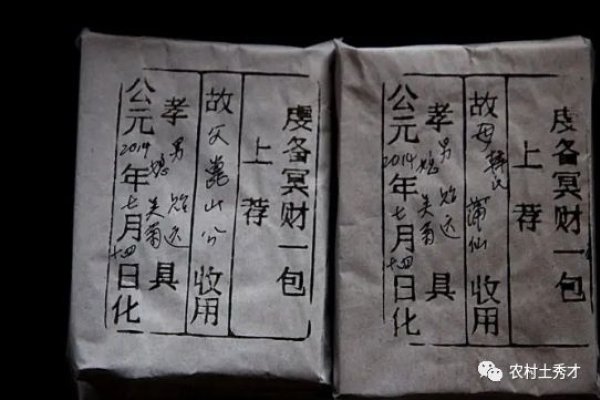 虔备冥财一包
上荐
故父山公收用
孝男远媳菊具
公元2014年七月十四日化
虔备冥财一包
上荐
故母韩氏蒲仙收用
孝男远媳菊具
公元2014年七月十四日化
农村土秀才